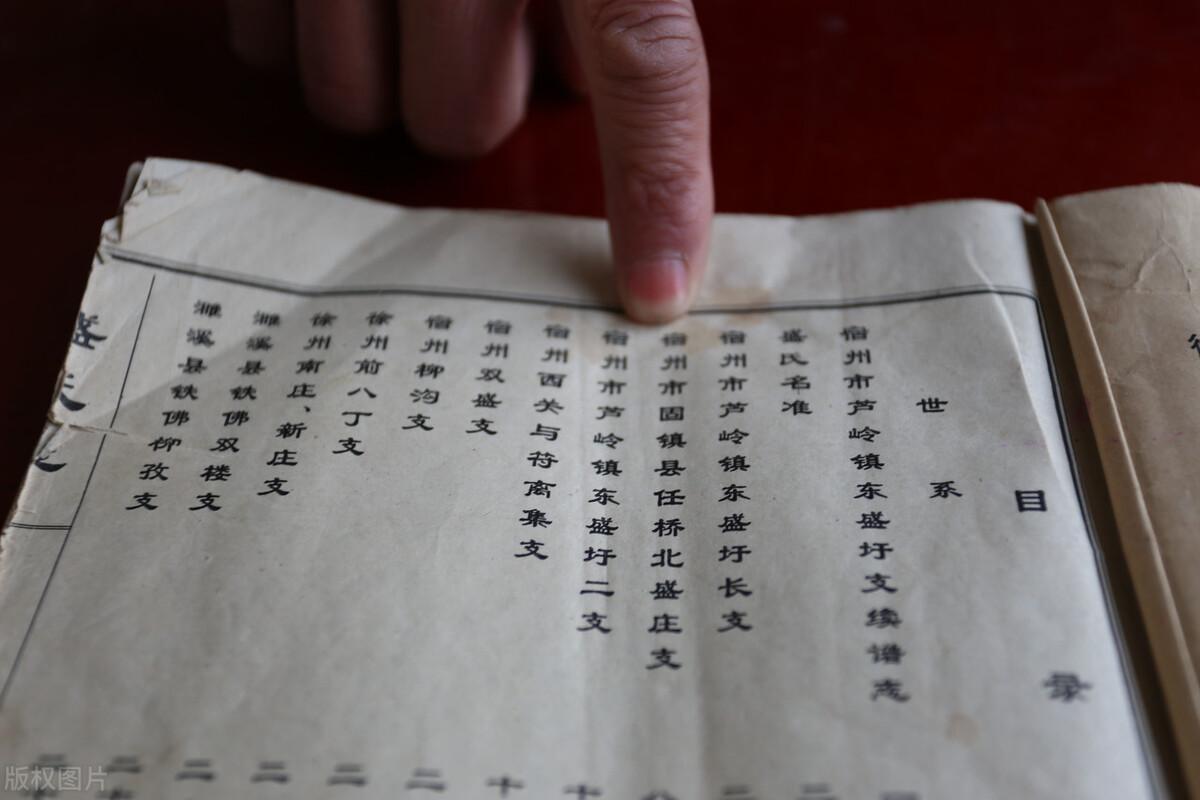 目录
世系
宿州市芦岭镇东盛圩支续谱志
盛氏名准
宿州市芦岭镇东盛圩长支
宿州市固镇县任桥北盛庄支
宿州市芦岭镇东盛圩二支
宿州西关与符离集支
宿州双盛支
宿州柳沟支
徐州前八丁支
徐州南庄、新庄支
濉溪县铁佛双楼支
濉溪县铁佛柳孜支
盛氏
版权图片